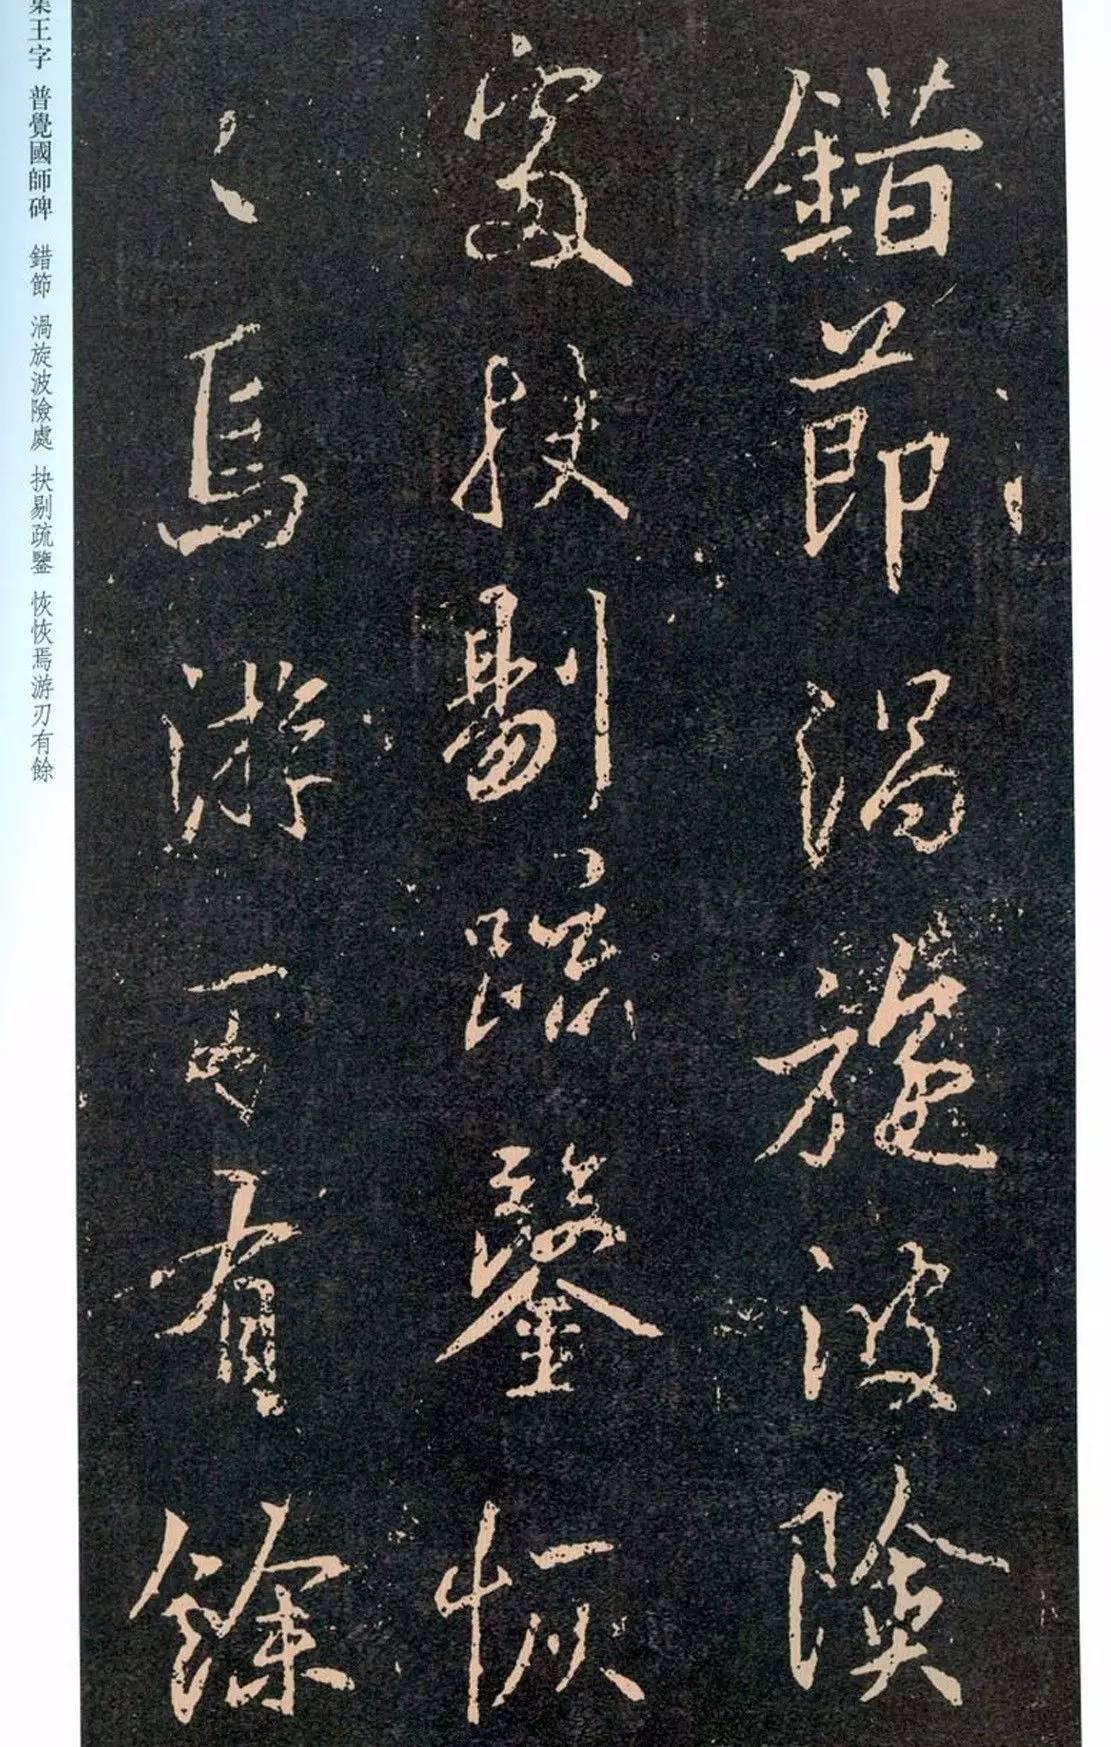 錯節渦旋波險
處抉剔疏鑿恢
〻焉游刃有餘
集王字 普覺國師碑 錯節 渦旋波險處 抉剔疏鑿 恢恢焉游刃有餘